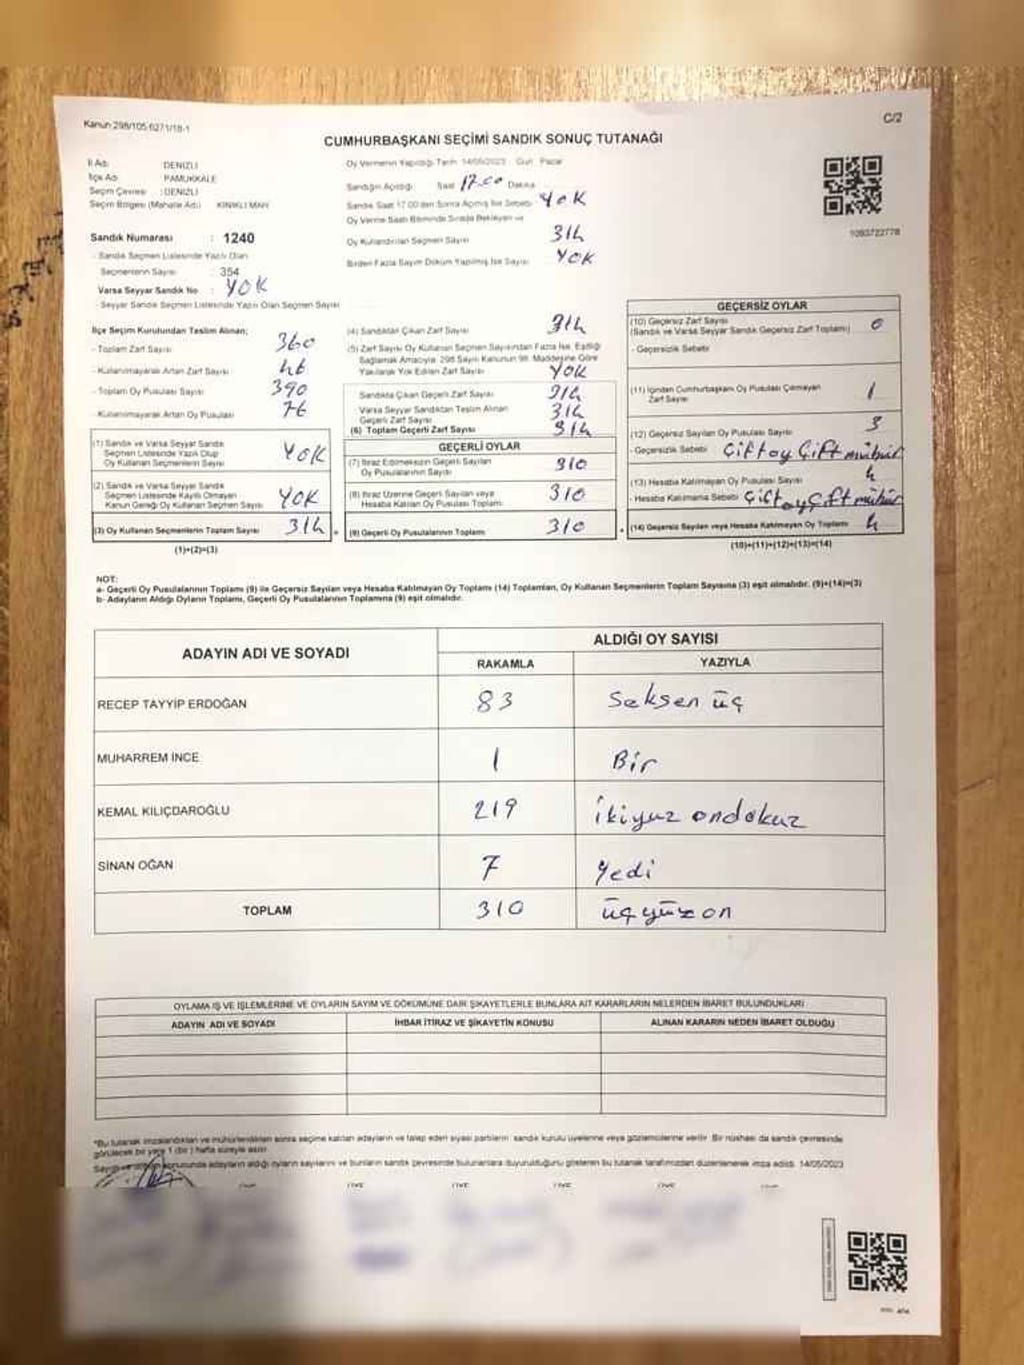 Kanun:298/105-6271/18-1
C/2
CUMHURBAŞKANI SEÇİMİ SANDIK SONUÇ TUTANAĞI
İl Adı : DENİZLİ
İlçe Adı : PAMUKKALE
Seçim Çevresi : DENİZLİ
Seçim Bölgesi (Mahalle Adı) : KINIKLI MAH
Sandık Numarası : 1240
- Sandık Seçmen Listesinde Yazılı Olan
Seçmenlerin Sayısı : 354
Varsa Seyyar Sandık No : YOK
- Seyyar Sandık Seçmen Listesinde Yazılı Olan Seçmen Sayısı :
Oy Vermenin Yapıldığı Tarih: 14/05/2023 Gün: Pazar
Sandığın Açıldığı Saat 17.00 Dakika
Sandık Saat 17.00'den Sonra Açılmış İse Sebebi YOK
Oy Verme Saati Bitiminde Sırada Bekleyen ve
Oy Kullandırılan Seçmen Sayısı 314
Birden Fazla Sayım Döküm Yapılmış İse Sayısı YOK
1093722778
İlçe Seçim Kurulundan Teslim Alınan;
- Toplam Zarf Sayısı 360
- Kullanılmayarak Artan Zarf Sayısı 46
- Toplam Oy Pusulası Sayısı 390
- Kullanılmayarak Artan Oy Pusulası 76
(1) Sandık ve Varsa Seyyar Sandık
Seçmen Listesinde Yazılı Olup
Oy Kullanan Seçmenlerin Sayısı YOK
(2) Sandık ve Varsa Seyyar Sandık
Seçmen Listesinde Kayıtlı Olmayan
Kanun Gereği Oy Kullanan Seçmen Sayısı YOK
(3) Oy Kullanan Seçmenlerin Toplam Sayısı 314
(1)+(2)=(3)
(4) Sandıktan Çıkan Zarf Sayısı 314
(5) Zarf Sayısı Oy Kullanan Seçmen Sayısından Fazla İse, Eşitliği
Sağlamak Amacıyla 298 Sayılı Kanunun 98. Maddesine Göre
Yakılarak Yok Edilen Zarf Sayısı YOK
Sandıkta Çıkan Geçerli Zarf Sayısı 314
Varsa Seyyar Sandıktan Teslim Alınan
Geçerli Zarf Sayısı 314
(6) Toplam Geçerli Zarf Sayısı 314
GEÇERLİ OYLAR
(7) İtiraz Edilmeksizin Geçerli Sayılan
Oy Pusulalarının Sayısı 310
(8) İtiraz Üzerine Geçerli Sayılan veya
Hesaba Katılan Oy Pusulası Toplamı 310
(9) Geçerli Oy Pusulalarının Toplamı 310
GEÇERSİZ OYLAR
(10) Geçersiz Zarf Sayısı
(Sandık ve Varsa Seyyar Sandık Geçersiz Zarf Toplamı) 0
- Geçersizlik Sebebi
(11) İçinden Cumhurbaşkanı Oy Pusulası Çıkmayan
Zarf Sayısı 1
(12) Geçersiz Sayılan Oy Pusulası Sayısı 3
- Geçersizlik Sebebi Çift oy Çift mühür
(13) Hesaba Katılmayan Oy Pusulası Sayısı 4
- Hesaba Katılmama Sebebi Çift oy Çift mühür
(14) Geçersiz Sayılan veya Hesaba Katılmayan Oy Toplamı 4
(10)+(11)+(12)+(13)=(14)
NOT:
a- Geçerli Oy Pusulalarının Toplamı (9) ile Geçersiz Sayılan veya Hesaba Katılmayan Oy Toplamı (14) Toplamları, Oy Kullanan Seçmenlerin Toplam Sayısına (3) eşit olmalıdır. (9)+(14)=(3)
b- Adayların Aldığı Oyların Toplamı, Geçerli Oy Pusulalarının Toplamına (9) eşit olmalıdır.
ADAYIN ADI VE SOYADI
ALDIĞI OY SAYISI
RAKAMLA YAZIYLA
RECEP TAYYİP ERDOĞAN 83 Seksen üç
MUHARREM İNCE 1 Bir
KEMAL KILIÇDAROĞLU 219 ikiyuz ondokuz
SİNAN OĞAN 7 Yedi
TOPLAM 310 üçyüz on
OYLAMA İŞ VE İŞLEMLERİNE VE OYLARIN SAYIM VE DÖKÜMÜNE DAİR ŞİKAYETLERLE BUNLARA AİT KARARLARIN NELERDEN İBARET BULUNDUKLARI
ADAYIN ADI VE SOYADI İHBAR İTİRAZ VE ŞİKAYETİN KONUSU ALINAN KARARIN NEDEN İBARET OLDUĞU
*Bu tutanak imzalandıktan ve mühürlendikten sonra seçime katılan adayların ve talep eden siyasi partilerin sandık kurulu üyelerine veya gözlemcilerine verilir. Bir nüshası da sandık çevresinde
görülecek bir yere 1 (bir) hafta süreyle asılır.
adayların aldığı oyların sayılarını ve bunların sandık çevresinde bulunanlara duyurulduğunu gösteren bu tutanak tarafımızdan düzenlenerek imza edildi. 14/05/2023